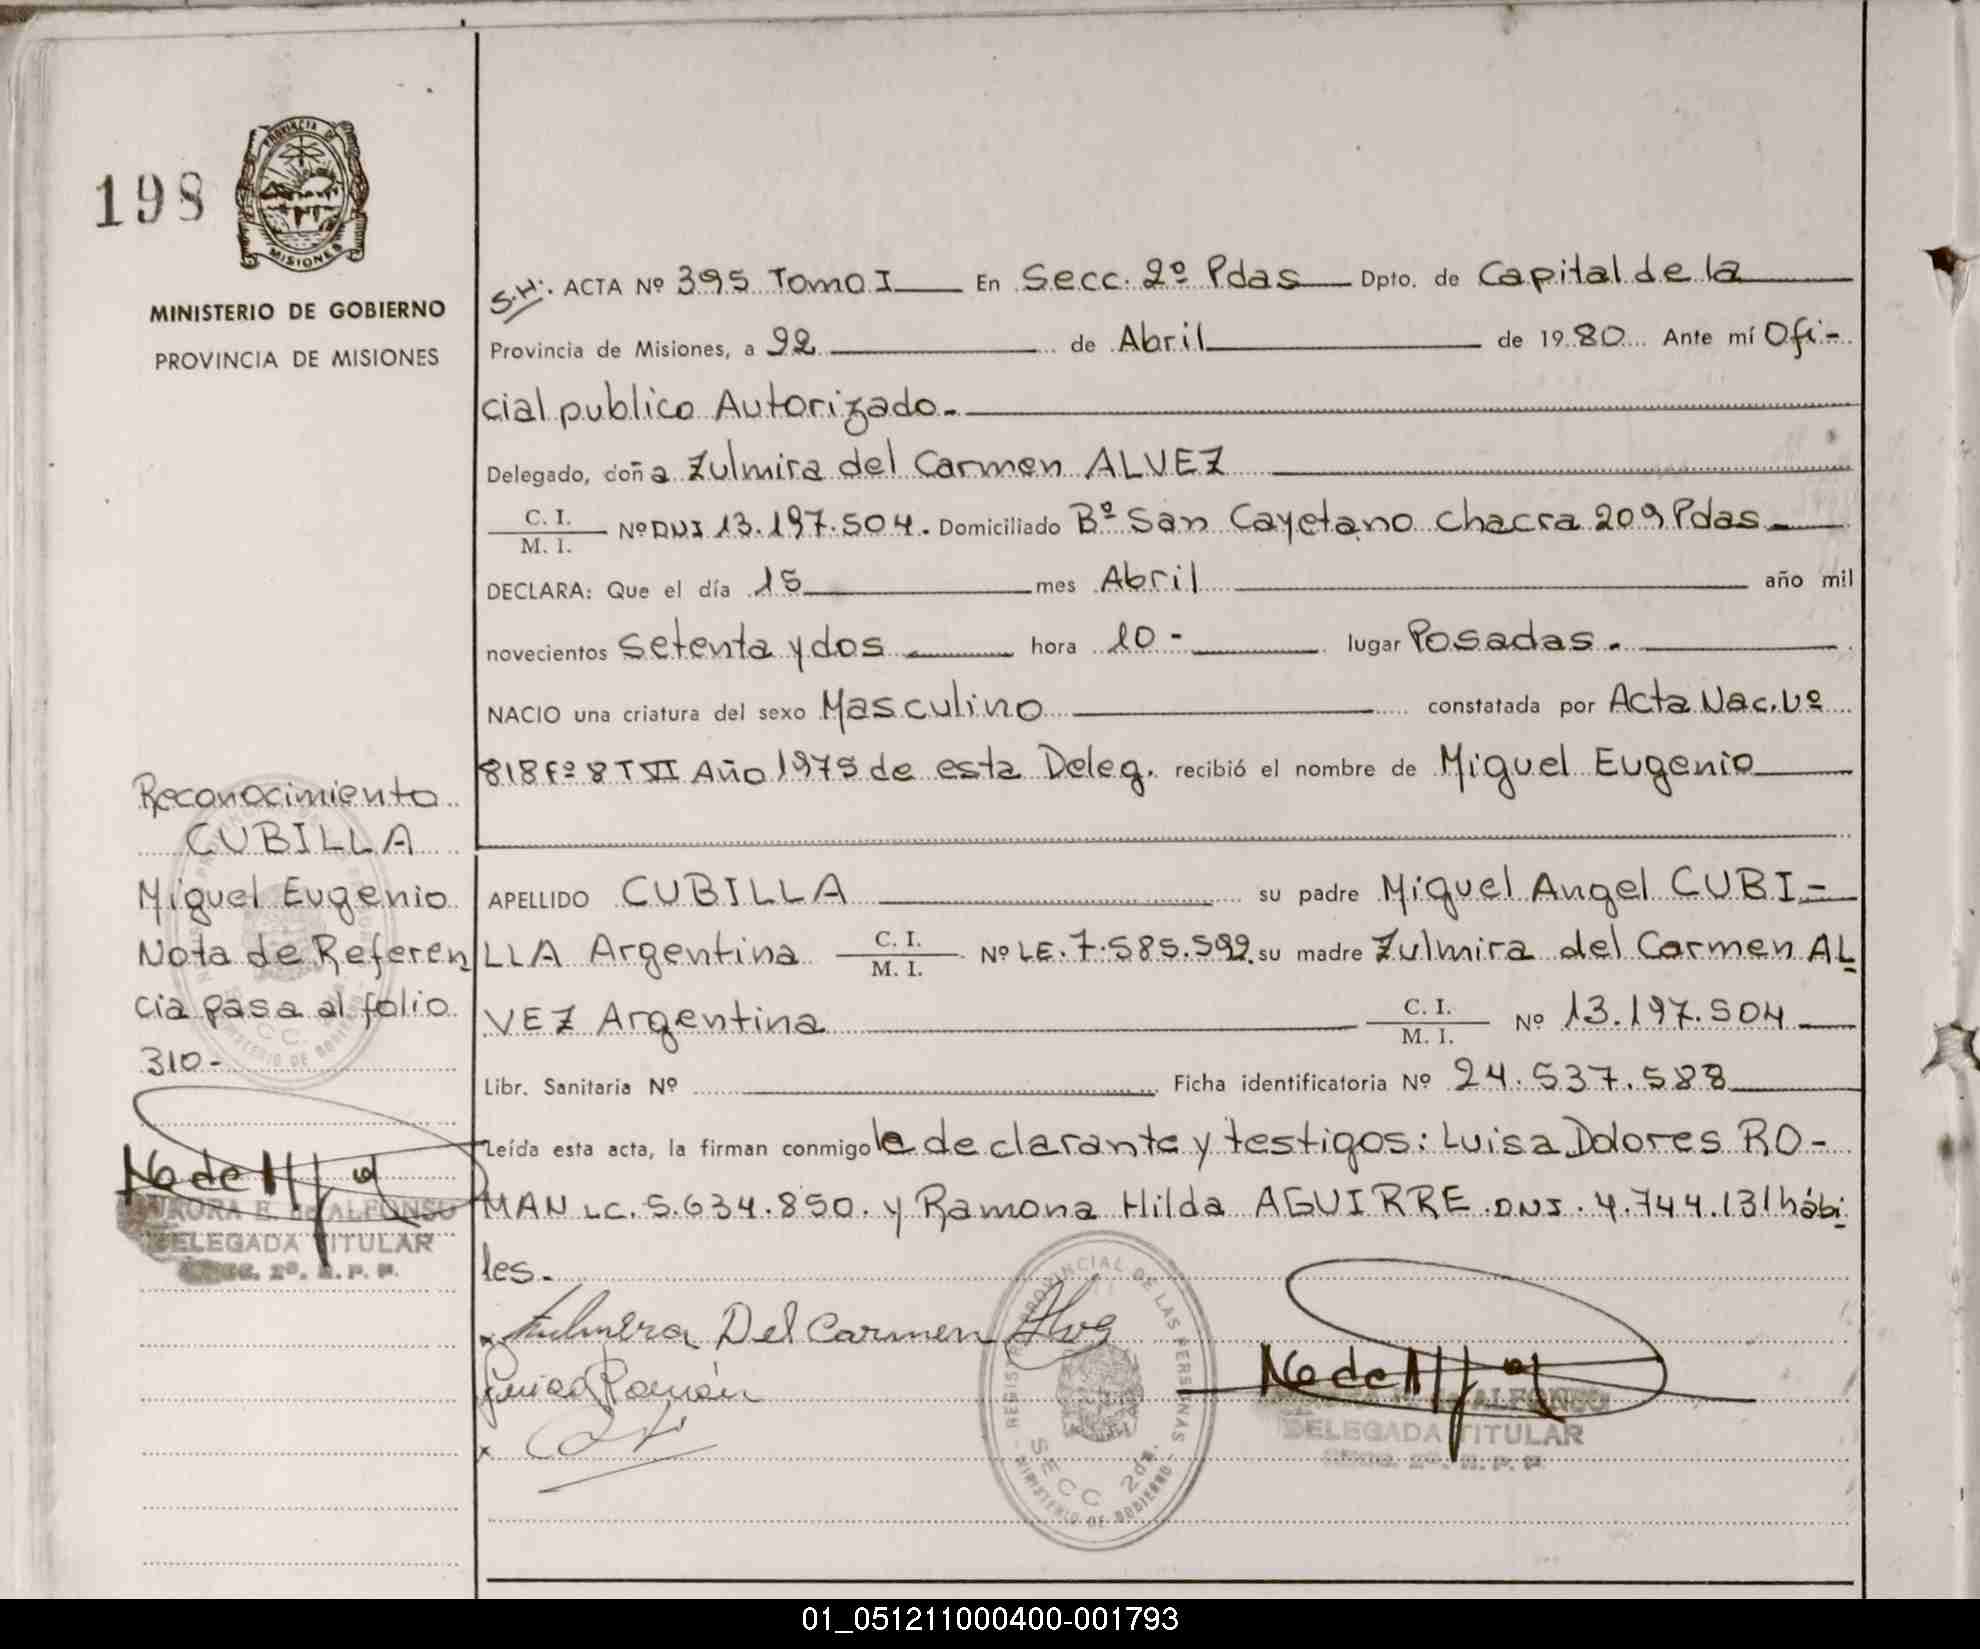 198
PROVINCIA DE
MISIONES
MINISTERIO DE GOBIERNO
PROVINCIA DE MISIONES
S.H: ACTA Nº 395 Tomo I En Secc. 2º Pdas Dpto. de Capital de la
Provincia de Misiones, a 22 de Abril de 1980 Ante mí Ofi-
cial publico Autorizado.
Delegado, doña Zulmira del Carmen ALVEZ
C. I.
M. I. Nº DNI 13.197.504. Domiciliado Bº San Cayetano Chacra 209 Pdas.
DECLARA: Que el día 15 mes Abril año mil
novecientos setenta y dos hora 10- lugar Posadas.
NACIO una criatura del sexo Masculino constatada por Acta Nac. Nº
818 Fº 8 T VI Año 1975 de esta Deleg. recibió el nombre de Miguel Eugenio
APELLIDO CUBILLA su padre Miguel Angel CUBI-
LLA Argentina C. I. M. I. Nº LE. 7.585.592. su madre Zulmira del Carmen AL
VEZ Argentina C. I. M. I. Nº 13.197.504
Libr. Sanitaria Nº Ficha identificatoria Nº 24.537.588
Leída esta acta, la firman conmigo la declarante y testigos: Luisa Dolores RO-
MAN LC. 5.634.850. y Ramona Hilda AGUIRRE DNI. 4.744.131 hábi
les.
Zulmira Del Carmen Alvez
Luisa Román
REGISTRO PROVINCIAL DE LAS PERSONAS
SECC 2da.
MINISTERIO DE GOBIERNO
DELEGADA TITULAR
Reconocimiento
CUBILLA
Miguel Eugenio
Nota de Referen
cia pasa al folio
310-
AURORA E. de ALFONSO
DELEGADA TITULAR
SECC. 2º. R. P. P.
01_051211000400-001793